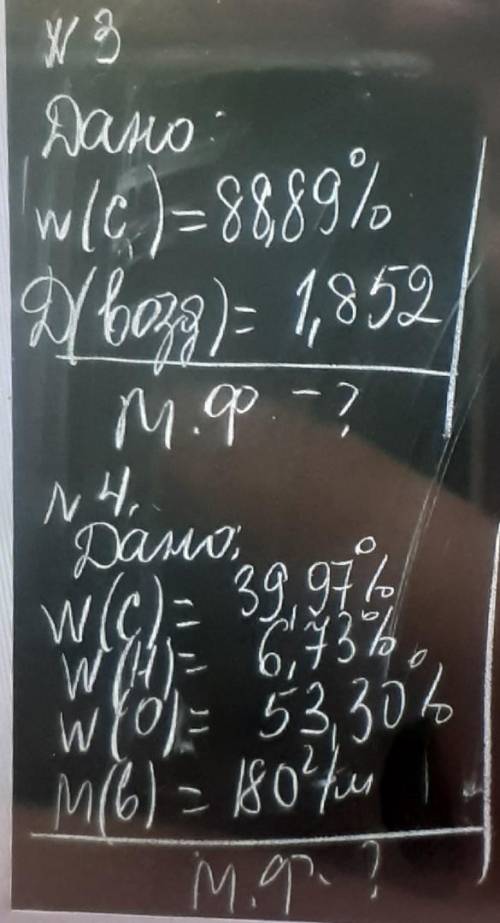 N 3
Дано:
w(C) = 88,89%
D(возд) = 1,852
М.Ф. - ?
N 4.
Дано:
W(C) = 39,97%
W(H) = 6,73%
W(O) = 53,30%
M(в) = 180 г/м
М.Ф. ?